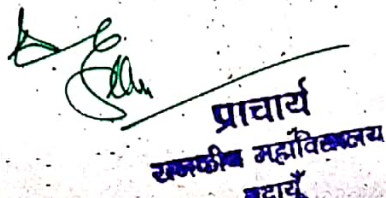 प्राचार्य
राजकीय महाविद्यालय
बदायूँ